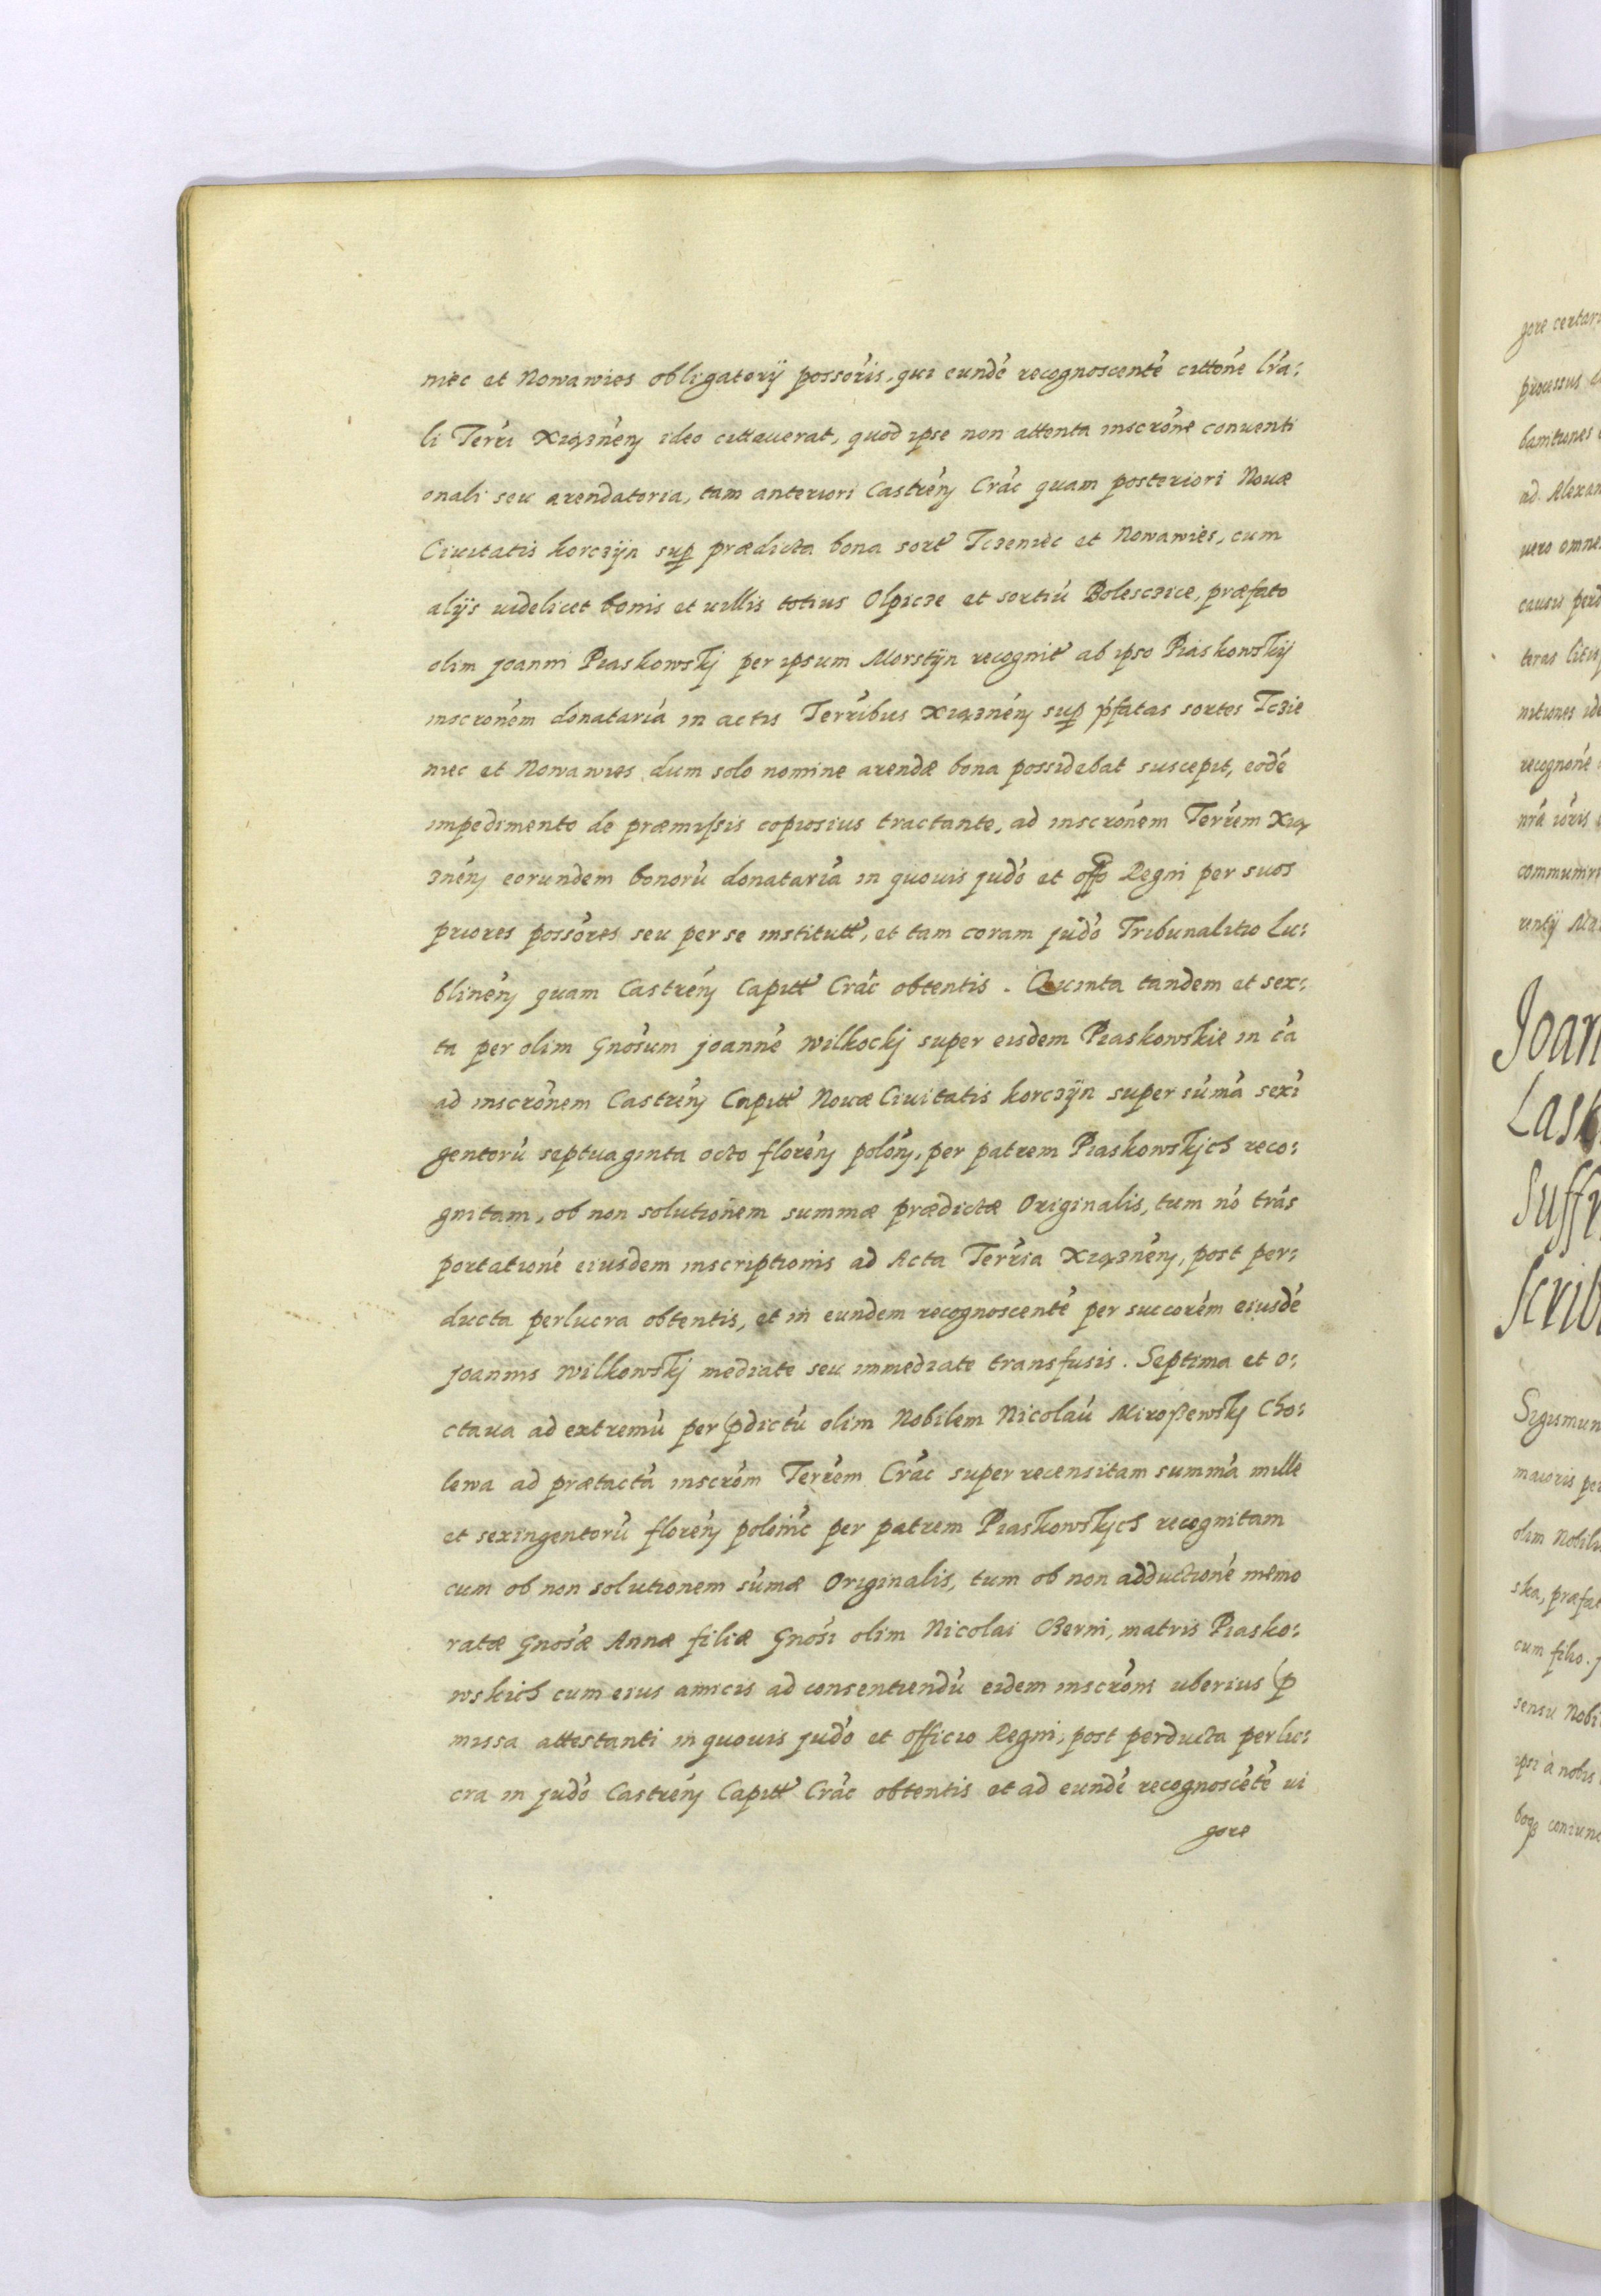 niec et Nowawies obligatorÿ possoris, qui eundé recognoscenté cittoné lrá:
li Terri Xiązneń ideo cittauerat, quod ipse non attenta inscrone conuenti
onali seu arendatoria, tam anteriori Castreń Crác quam posteriori Nouæ
Ciuitatis Korczÿn sup prædicta bona sort Tczeniec et Nowawies, cum
alÿs uidelicet bonis et uillis totius Olpicze et sortiú Bolesczice, præfato
olim Joanni Piaskowskj per ipsum Morstÿn recognit ab ipso Piaskowskÿ
inscronem donatariá in actis Terribus Xiązneń sup pfatas sortes Tczie
niec et Nowawies dum solo nomine arendæ bona possidebat suscepit, eodé
impedimento de præmissis copiosius tractante, ad inscronem Terrem Xią
zneń eorundem bonorú donatariá in quouis judo et offo Regni per suos
priores possores seu per se institutt, et tam coram judo Tribunalitio Lu:
blineń quam Castreń Capitt Crác obtentis. Quinta tandem et sex:
ta per olim Gnosum Joanné Wilkockj super eisdem Piaskowskie in cá
ad inscronem Castreń Capitt Nouæ Ciuitatis Korczÿn super súmá sexi
gentorú septuaginta octo floreń poloń, per patrem Piaskowskjch reco:
gnitam, ob non solutionem summæ prædictæ Originalis, tum nó trás
portationé eiusdem inscriptionis ad Acta Terria Xiązneń, post per:
ducta perlucra obtentis, et in eundem recognoscenté per succorem eiusdé
Joannis Wilkowskj mediate seu immediate transfusis. Septima et o:
ctaua ad extremú per pdictú olim Nobilem Nicolaú Miroßewskj Cho:
lewa ad prætactá inscrom Terrem Crác super recensitam summá mille
et sexingentorú floreń polonic per patrem Piaskowskjch recognitam
cum ob non solutionem súmæ Originalis, tum ob non adductioné memo
ratæ Gnosæ Annæ filiæ Gnosi olim Nicolai Berni, matris Piasko:
wskich cum eius amicis ad consentiendú eidem inscroni uberius p
missa attestanti in quouis judo et officio Regni, post perducta perlu:
cra in judo Castreń Capitt Crác obtentis et ad eundé recognosceté ui
gore
gore certar
processus
banitiones
ad Alexan
uero omne
causis perd
teras
nitiones ide
recognoné
nrá
communiri
rentÿ
Joan
Lask
Suffr
Scrib
Sigismun
maioris per
olim Nobili
ska, præfat
cum filio
sensu Nobi
ipsi à nobis
coniunc